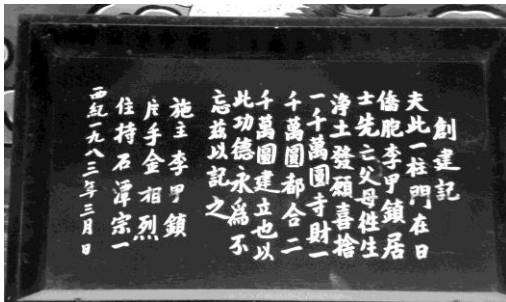 創建記
夫此一柱門在日
僑胞李甲鎖居
士先亡父母徃生
淨土發願喜捨
一千萬圓寺財一
千萬圓都合二
千萬圓建立也以
此功德永爲不
忘玆以記之
施主 李甲鎖
片手 金相烈
住持 石潭宗一
西紀一九八三年三月日